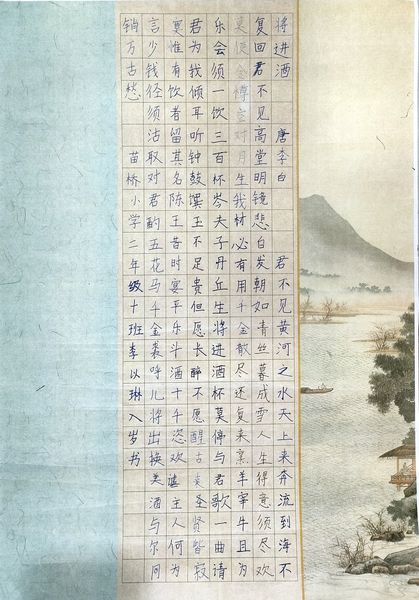 将进酒 唐李白 君不见黄河之水天上来奔流到海不
复回君不见高堂明镜悲白发朝如青丝暮成雪人生得意须尽欢
莫使金樽空对月生我材必有用千金散尽还复来烹羊宰牛且为
乐会须一饮三百杯岑夫子丹丘生将进酒杯莫停与君歌一曲请
君为我倾耳听钟鼓馔玉不足贵但愿长醉不愿醒古来圣贤皆寂
寞惟有饮者留其名陈王昔时宴平乐斗酒十千恣欢谑主人何为
言少钱径须沽取对君酌五花马千金裘呼儿将出换美酒与尔同
销万古愁 苗桥小学二年级十班李以琳八岁书